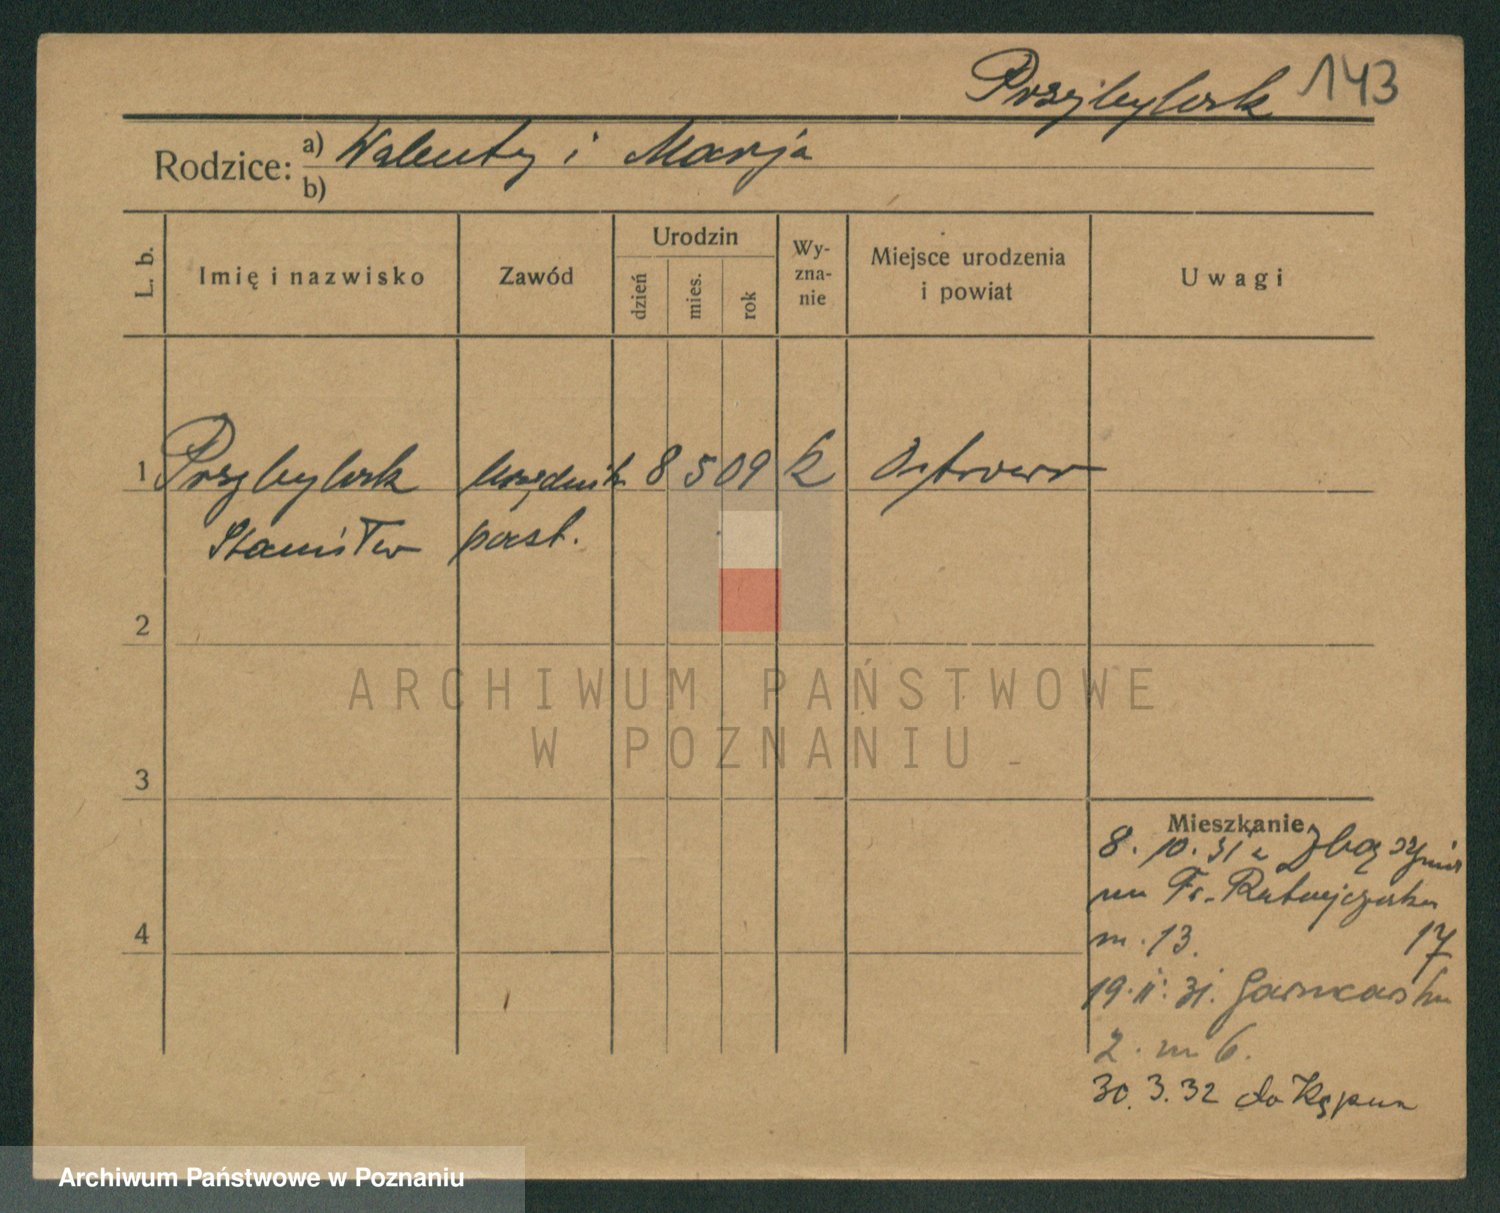 Przybylsk 143
Rodzice: a) Walenty i Marja
b)
L. b.
Imię i nazwisko
Zawód
Urodzin
dzień
mies.
rok
Wy-
zna-
nie
Miejsce urodzenia
i powiat
Uwagi
1 Przybylsk urzędnik 8 5 09 k Ostrowo
Stanisław poczt.
2
3
4
Mieszkanie
8. 10. 31 z Zbąszynia
na Fr. Ratajczaka
m. 13. 17
19. II. 31. Garncarska
2. m 6.
30. 3. 32 do Kępna
ARCHIWUM PAŃSTWOWE
W POZNANIU
Archiwum Państwowe w Poznaniu